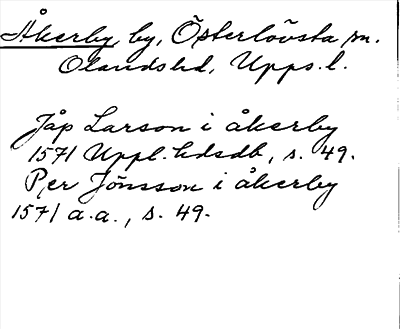 Åkerby, by, Österlövsta sn.
Olandshd, Upps. l.
Jåp Larson i åkerby
1571 Uppl. hdsdb, s. 49.
Per Jönsson i åkerby
1571 a.a., s. 49.